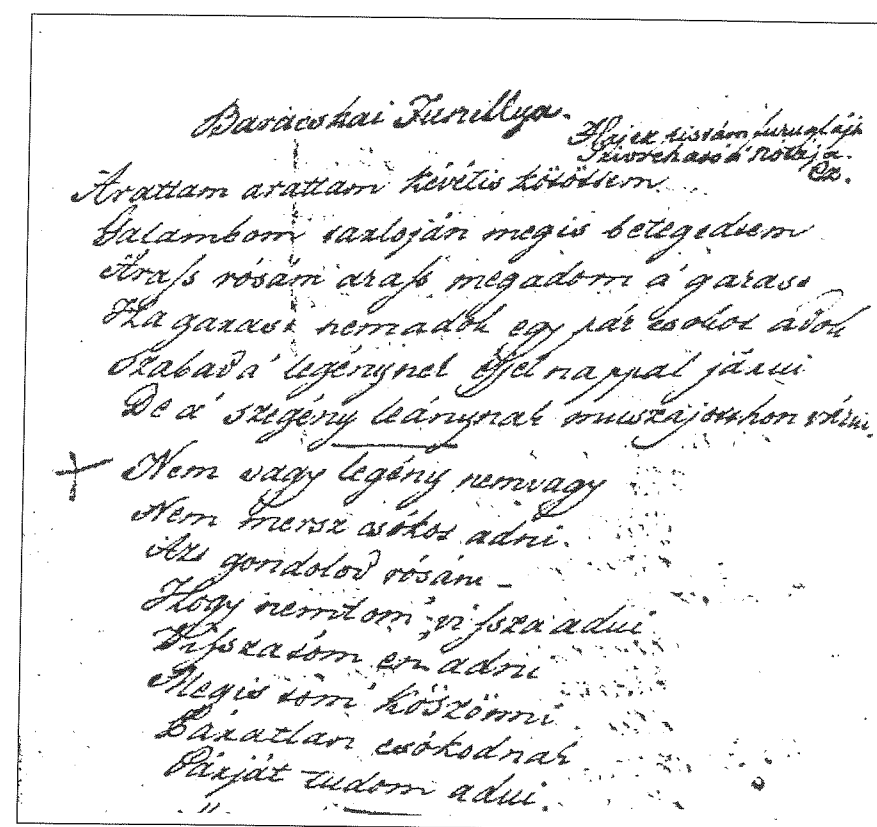 Barácskai
Haj ez
nótája.
Ez.
Arattam arattam kévétis kötöttem
Galambom tarlóján megis betegedtem
Araſs rósám araſs megadom á garast
Ha garast nemadok egy pár csokot ádok
Szabad á legénynek éjjel nappal járni
De á szegény leánynak muszáj otthon várni.
Nem vagy legény nemvagy
Nem mersz csókot adni.
Azt gondolod rósám –
Hogy nemtom viſsza adni
Viſsza tóm én adni
Megis tóm köszönni
Páratlan csókodnak
Párját tudom adni.